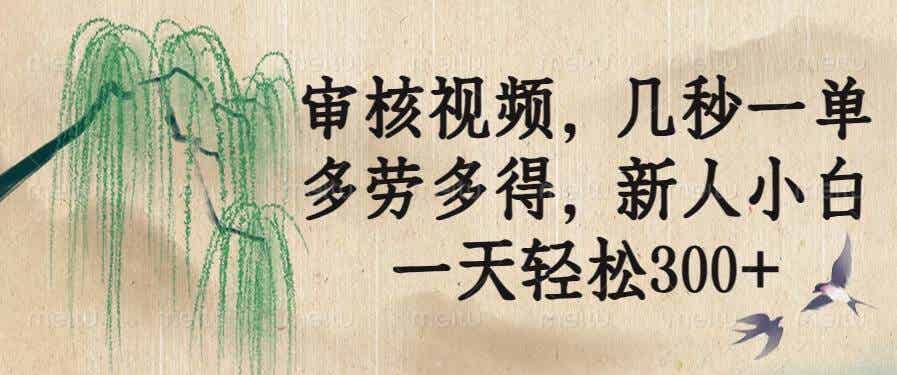 审核视频，几秒一单
多劳多得，新人小白
一天轻松300+